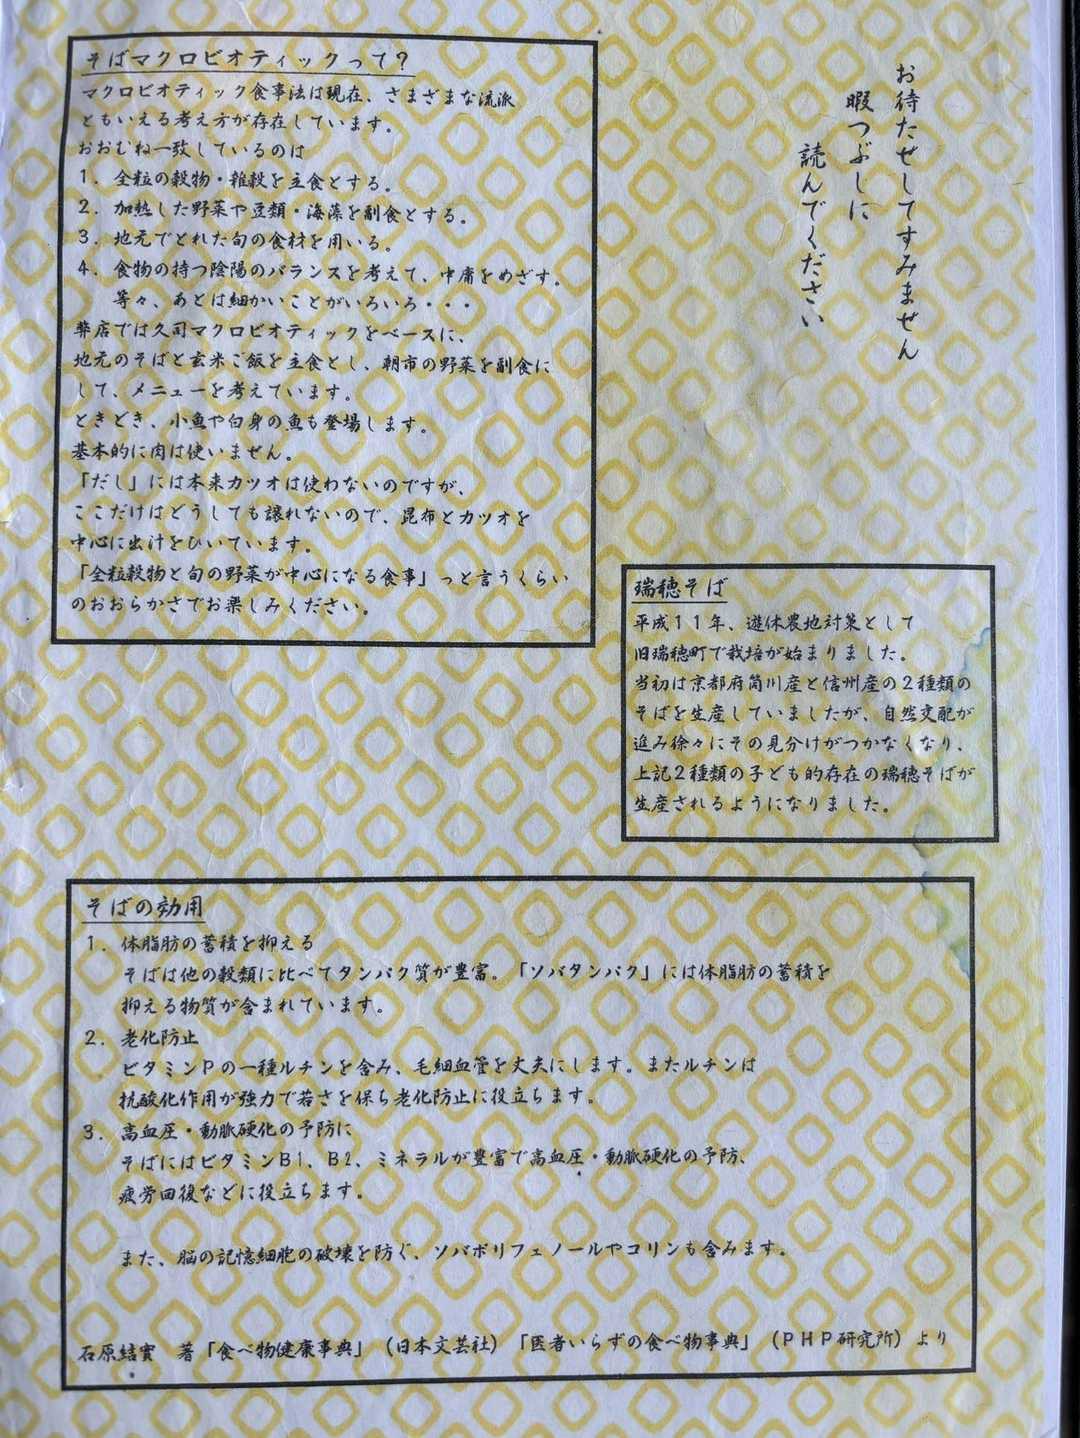 お待たせしてすみません
暇つぶしに
読んでください
そばマクロビオティックって？
マクロビオティック食事法は現在、さまざまな流派
ともいえる考え方が存在しています。
おおむね一致しているのは
１．全粒の穀物・雑穀を主食とする。
２．加熱した野菜や豆類・海藻を副食とする。
３．地元でとれた旬の食材を用いる。
４．食物の持つ陰陽のバランスを考えて、中庸をめざす。
等々、あとは細かいことがいろいろ・・・
弊店では久司マクロビオティックをベースに、
地元のそばと玄米ご飯を主食とし、朝市の野菜を副食に
して、メニューを考えています。
ときどき、小魚や白身の魚も登場します。
基本的に肉は使いません。
「だし」には本来カツオは使わないのですが、
ここだけはどうしても譲れないので、昆布とカツオを
中心に出汁をひいています。
「全粒穀物と旬の野菜が中心になる食事」っと言うくらい
のおおらかさでお楽しみください。
瑞穂そば
平成１１年、遊休農地対策として
旧瑞穂町で栽培が始まりました。
当初は京都府筒川産と信州産の２種類の
そばを生産していましたが、自然交配が
進み徐々にその見分けがつかなくなり、
上記２種類の子ども的存在の瑞穂そばが
生産されるようになりました。
そばの効用
１．体脂肪の蓄積を抑える
そばは他の穀類に比べてタンパク質が豊富。「ソバタンパク」には体脂肪の蓄積を
抑える物質が含まれています。
２．老化防止
ビタミンＰの一種ルチンを含み、毛細血管を丈夫にします。またルチンは
抗酸化作用が強力で若さを保ち老化防止に役立ちます。
３．高血圧・動脈硬化の予防に
そばにはビタミンＢ１、Ｂ２、ミネラルが豊富で高血圧・動脈硬化の予防、
疲労回復などに役立ちます。
また、脳の記憶細胞の破壊を防ぐ、ソバポリフェノールやコリンも含みます。
石原結實　著「食べ物健康事典」（日本文芸社）「医者いらずの食べ物事典」（ＰＨＰ研究所）より